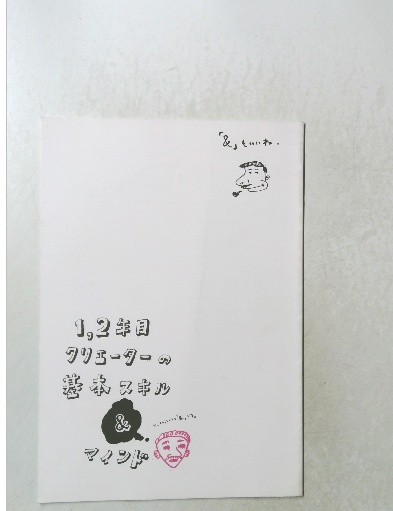 「&」もいいね.
1,2年目
クリエーターの
基本スキル
&
マインド